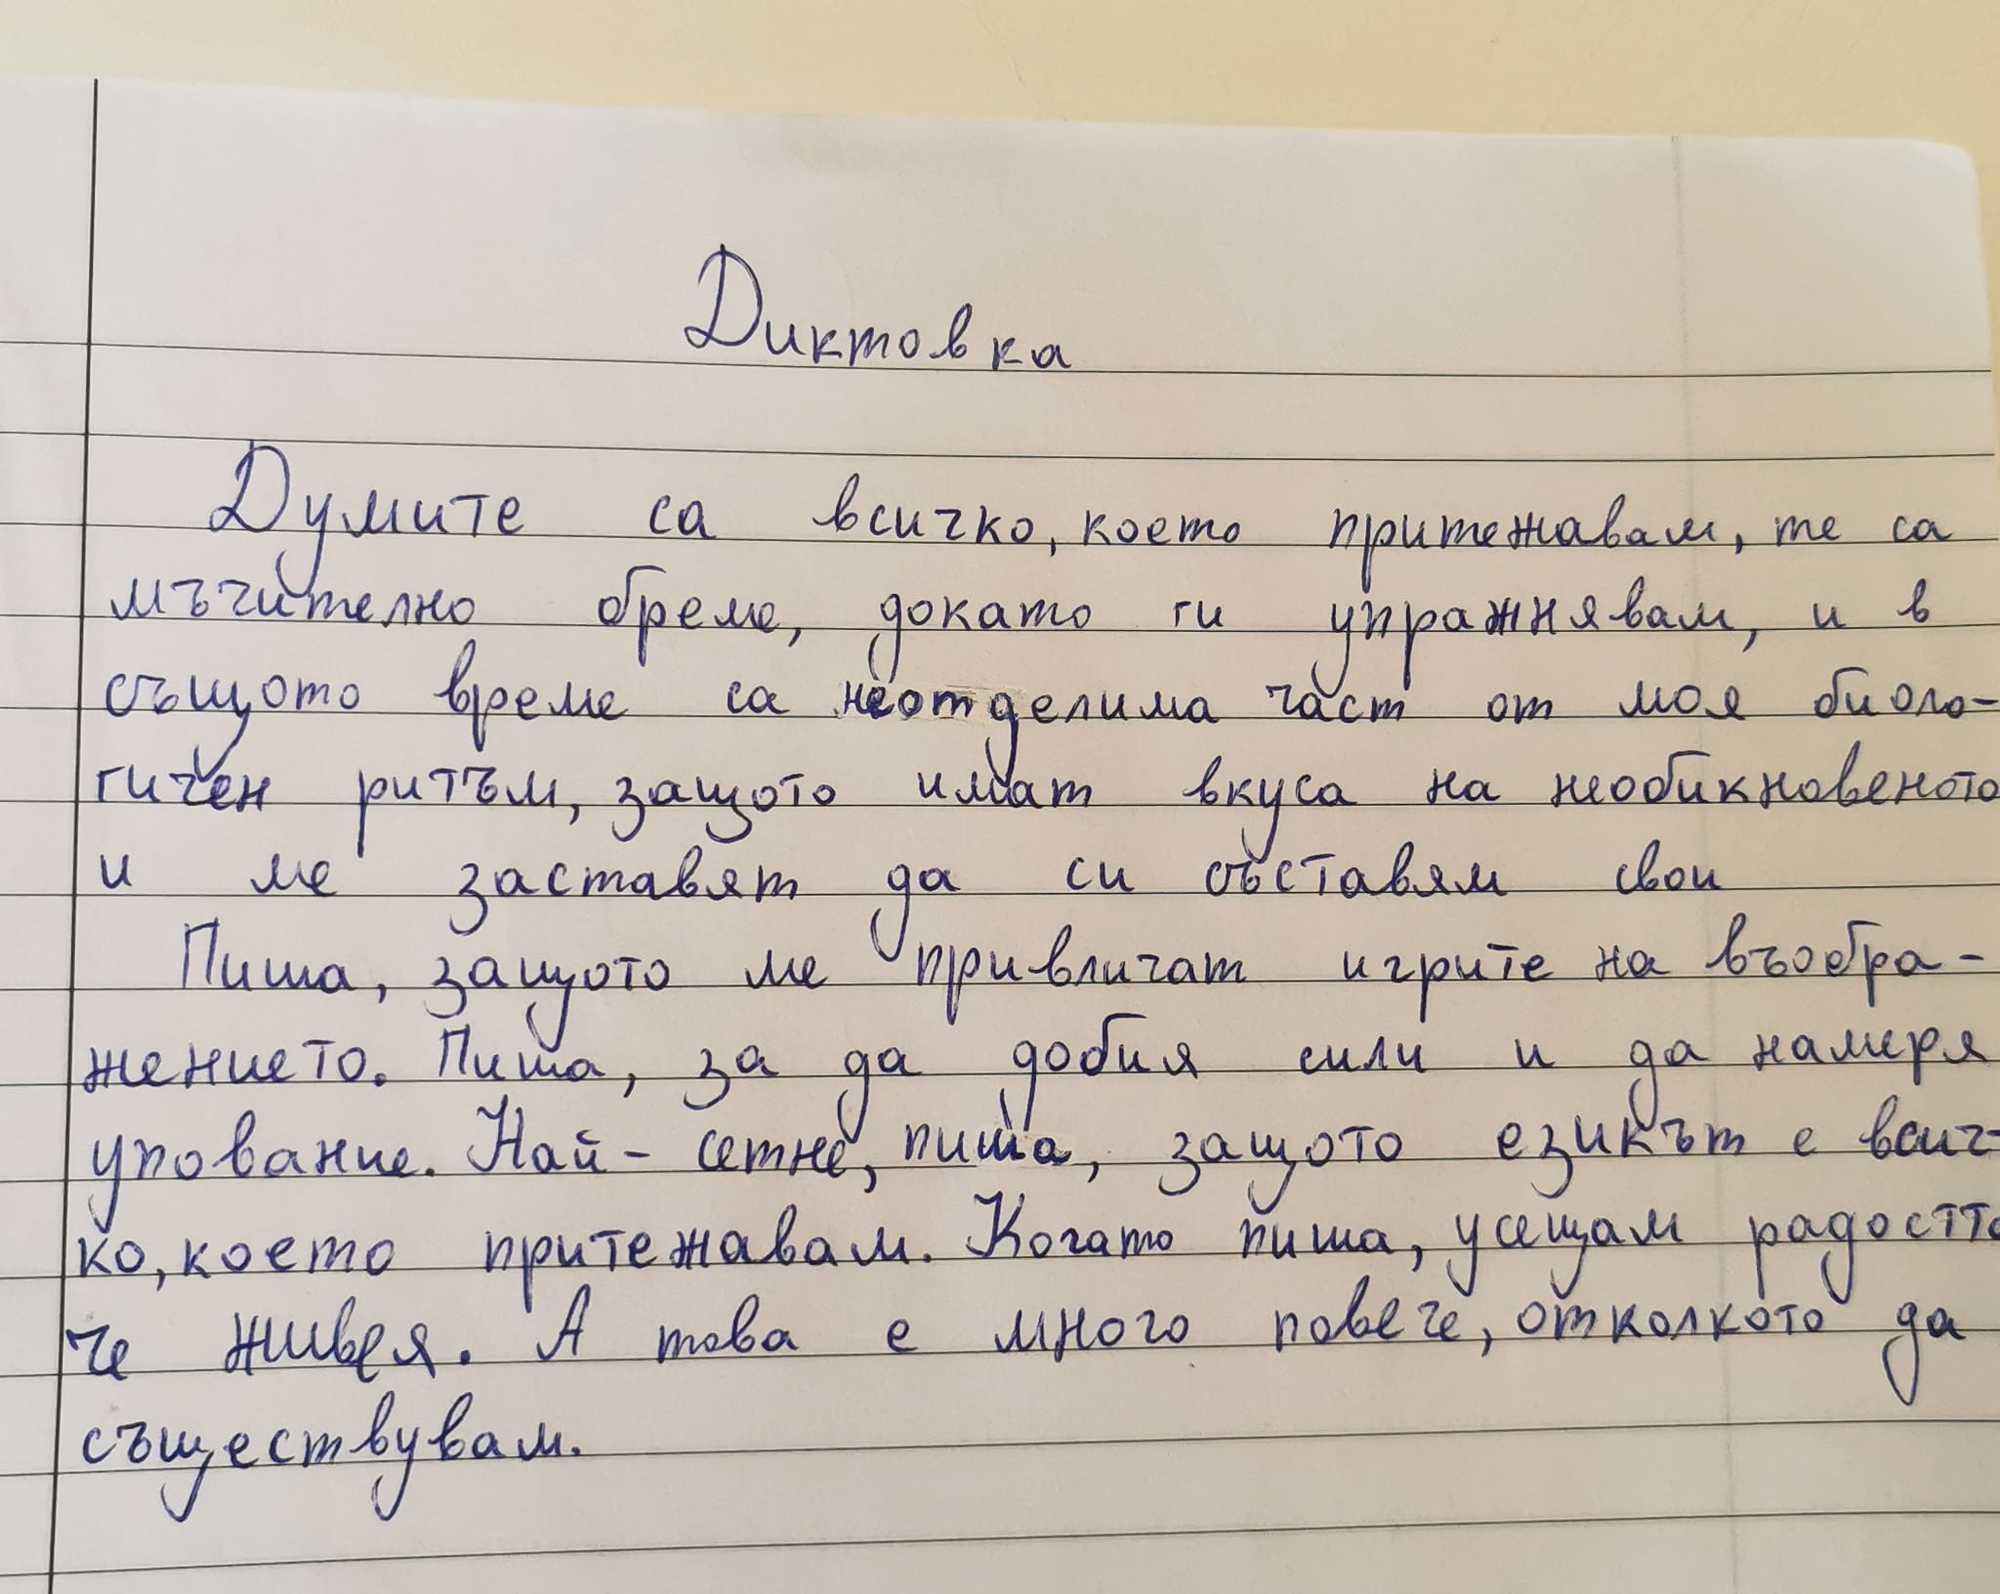 Диктовка
Думите са всичко, което притежавам, те са
мъчително бреме, докато ги упражнявам, и в
същото време са неотделима част от моя биоло-
гичен ритъм, защото имат вкуса на необикновеното
и ме заставят да си съставям свои
Пиша, защото ме привличат игрите на въобра-
жението. Пиша, за да добия сили и да намеря
упование. Най-сетне, пиша, защото езикът е всич-
ко, което притежавам. Когато пиша, усещам радостта
че живея. А това е много повече, отколкото да
съществувам.